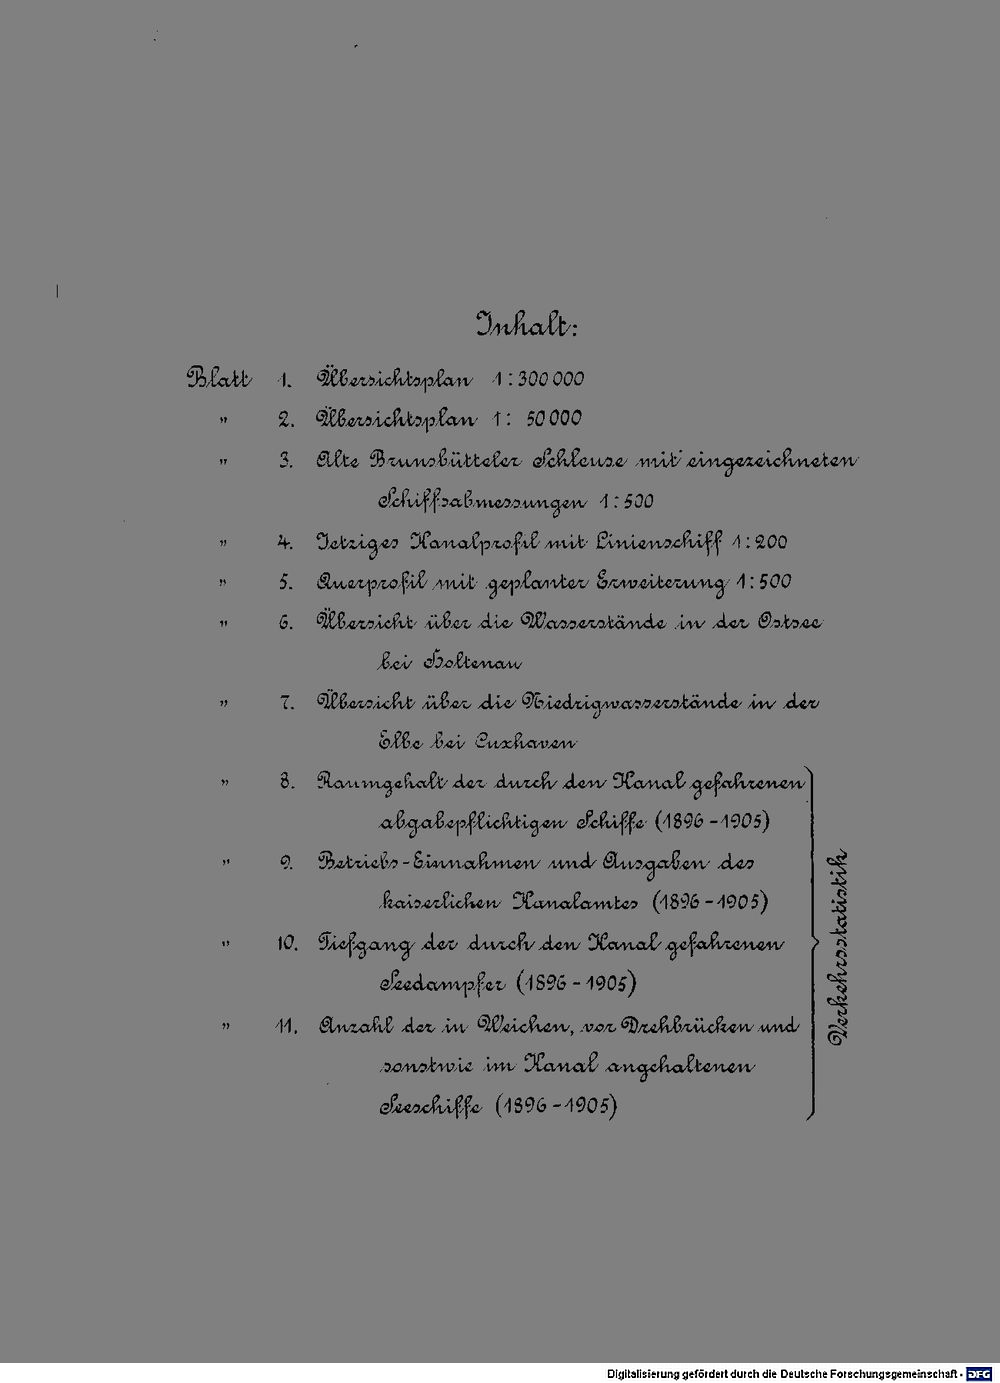 Inhalt:
Blatt 1. Übersichtsplan 1:300 000
" 2. Übersichtsplan 1: 50 000
" 3. Alte Brunsbütteler Schleuse mit eingezeichneten
Schiffsabmessungen 1:500
" 4. Jetziges Kanalprofil mit Linienschiff 1:200
" 5. Querprofil mit geplanter Erweiterung 1:500
" 6. Übersicht über die Wasserstände in der Ostsee
bei Holtenau
" 7. Übersicht über die Niedrigwasserstände in der
Elbe bei Cuxhaven
" 8. Raumgehalt der durch den Kanal gefahrenen
abgabepflichtigen Schiffe (1896-1905)
" 9. Betriebs-Einnahmen und Ausgaben des
kaiserlichen Kanalamtes (1896-1905)
" 10. Tiefgang der durch den Kanal gefahrenen
Seedampfer (1896-1905)
" 11. Anzahl der in Weichen, vor Drehbrücken und
sonstwie im Kanal angehaltenen
Seeschiffe (1896-1905)
Verkehrsstatistik
Digitalisierung gefördert durch die Deutsche Forschungsgemeinschaft - DFG